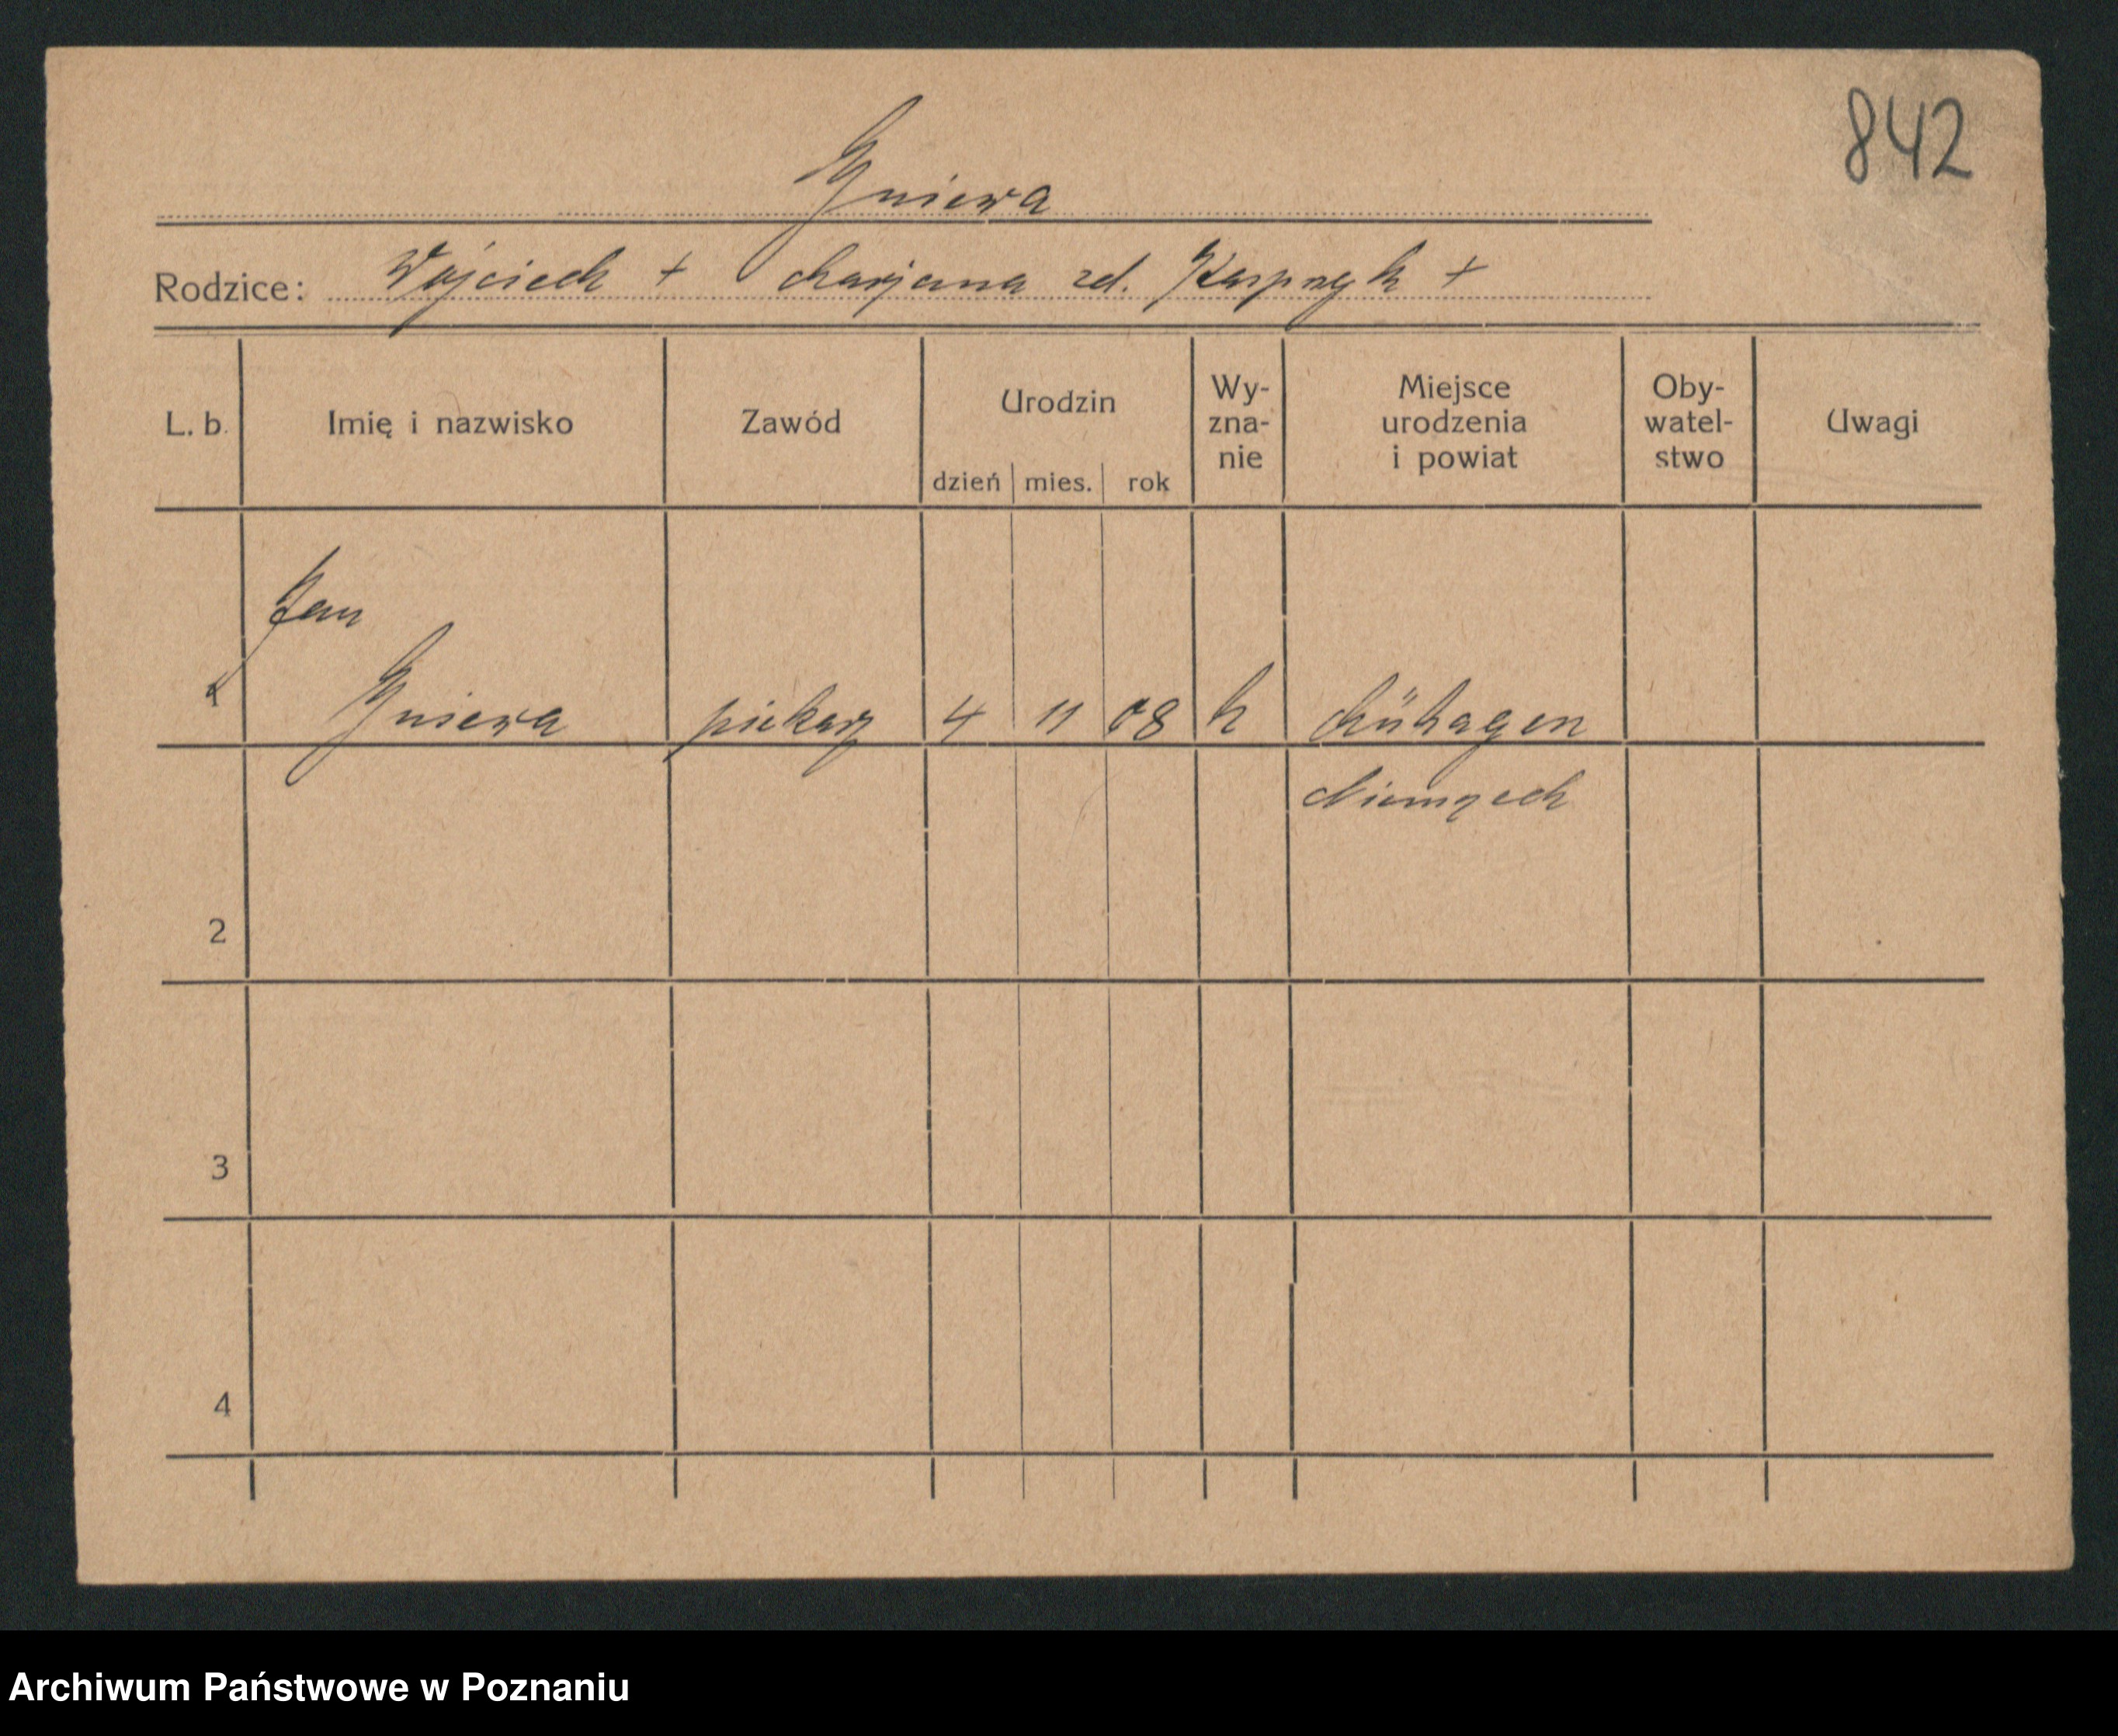 842
Gniewa
Rodzice: Wojciech + Marjana zd. Kasprzyk +
L. b. Imię i nazwisko Zawód Urodzin dzień mies. rok Wy-zna-nie Miejsce urodzenia i powiat Oby-watel-stwo Uwagi
Jan
1 Gniewa piekarz 4 11 08 k Mühagen
Niemczech
2
3
4
Archiwum Państwowe w Poznaniu